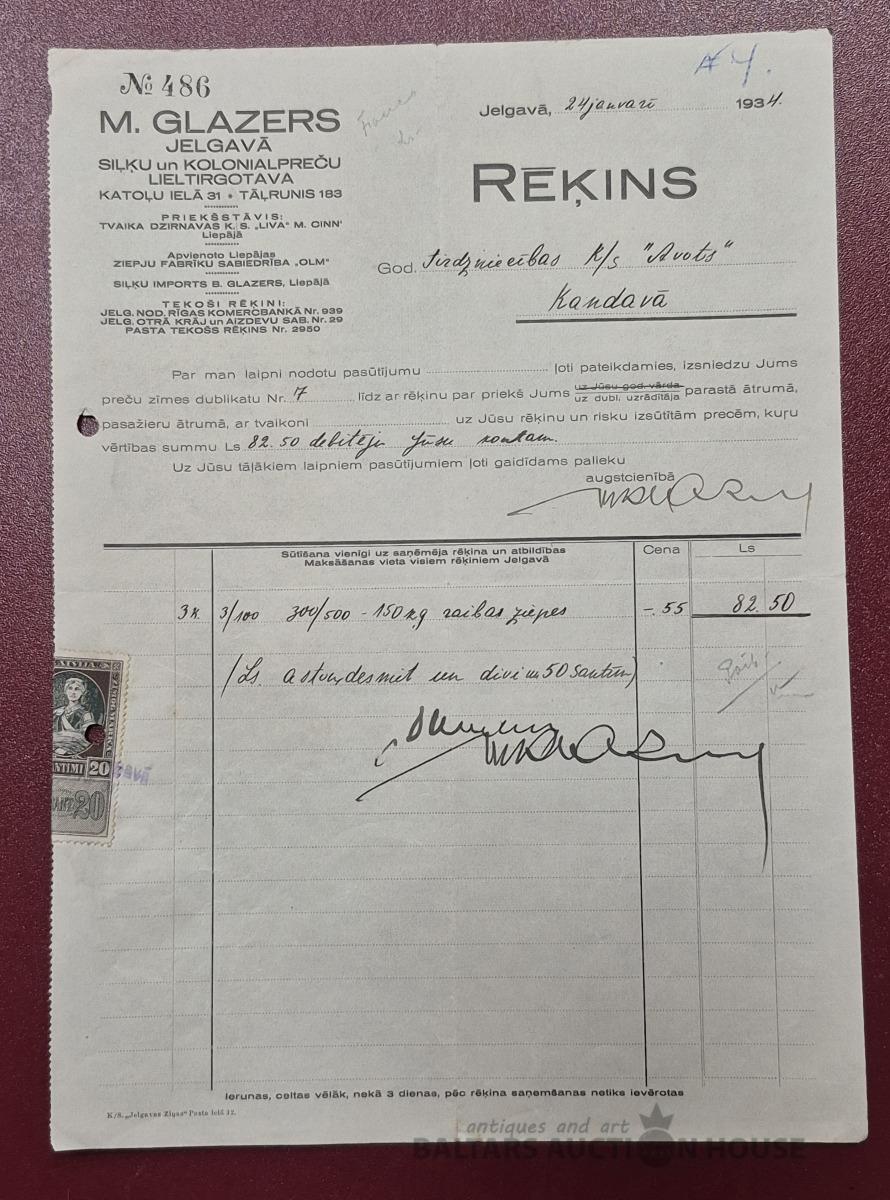 № 486
M. GLAZERS
JELGAVĀ
SIĻĶU un KOLONIALPREČU
LIELTIRGOTAVA
KATOĻU IELĀ 31 • TĀĻRUNIS 183
PRIEKŠSTĀVIS:
TVAIKA DZIRNAVAS K. S. „LIVA" M. CINN'
Liepājā
Apvienoto Liepājas
ZIEPJU FABRĪKU SABIEDRĪBA „OLM"
SIĻĶU IMPORTS B. GLAZERS, Liepājā
TEKOŠI RĒĶINI:
JELG. NOD. RĪGAS KOMERCBANKĀ Nr. 939
JELG. OTRĀ KRĀJ un AIZDEVU SAB. Nr. 29
PASTA TEKOŠS RĒĶINS Nr. 2950
Jelgavā, 24 janvarī 1934.
RĒĶINS
God. Tirdzniecības K/s "Avots"
Kandavā
Par man laipni nodotu pasūtījumu ļoti pateikdamies, izsniedzu Jums
preču zīmes dublikatu Nr. 7 līdz ar rēķinu par priekš Jums uz Jūsu god. vārda parastā ātrumā,
uz dubl. uzrādītāja
pasažieru ātrumā, ar tvaikoni uz Jūsu rēķinu un risku izsūtītām precēm, kuŗu
vērtības summu Ls 82.50 debitēju Jūsu kontam.
Uz Jūsu tāļākiem laipniem pasūtījumiem ļoti gaidīdams palieku
augstcienībā
Sūtīšana vienīgi uz saņēmēja rēķina un atbildības
Maksāšanas vieta visiem rēķiniem Jelgavā
Cena Ls
3 k. 3/100 300/500 - 150 kg raibas ziepes -.55 82.50
(Ls. astoņdesmit un divi un 50 santīm)
LATVIJA
NTIMI 20
20
Ierunas, celtas vēlāk, nekā 3 dienas, pēc rēķina saņemšanas netiks ievērotas
K/S. „Jelgavas Ziņas" Pasta ielā 12.
antiques and art
BALTARS AUCTION HOUSE